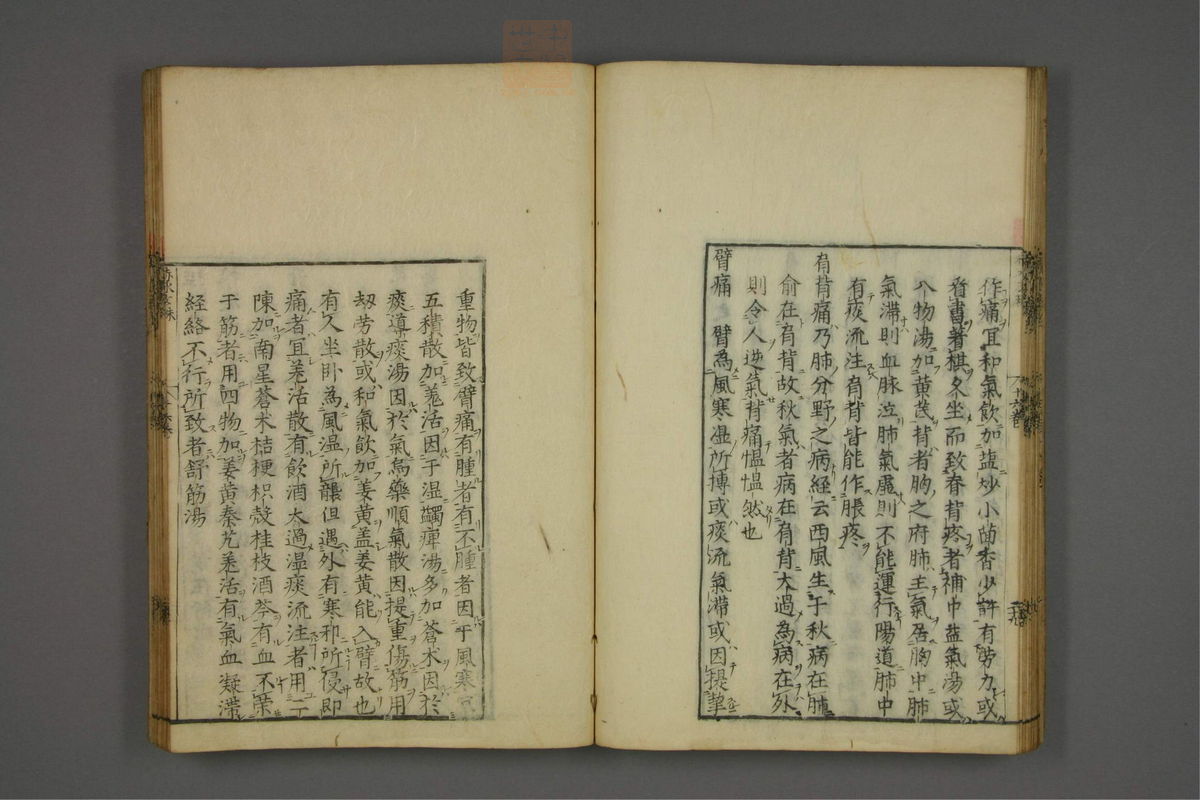 作痛宜和氣飲加塩炒小茴香少許有労力或
看書著棋久坐而致脊背疼者補中益氣湯或
八物湯加黄芪背者胸之府肺主氣居胸中肺
氣滞則血脉泣肺氣虚則不能運行陽道肺中
有痰流注肩背皆能作脹疼
肩背痛乃肺分野之病経云西風生于秋病在肺
俞在肩背故秋氣者病在肩背太過為病在外
則令人逆氣背痛慍慍然也
臂痛 臂為風寒湿所搏或痰流氣滞或因提挈
重物皆致臂痛有腫者有不腫者因于風寒宜
五積散加羗活因于湿蠲痺湯多加蒼术因於
痰導痰湯因於氣烏藥順氣散因提重傷筋用
劫労散或和氣飲加姜黄盖姜黄能入臂故也
有久坐卧為風温所襲但遇外有寒邪所侵即
痛者宜羗活散有飲酒太過湿痰流注者用二
陳加南星蒼术桔梗枳殻桂枝酒芩有血不荣
于筋者用四物加姜黄秦艽羗活有氣血凝滞
経絡不行所致者舒筋湯